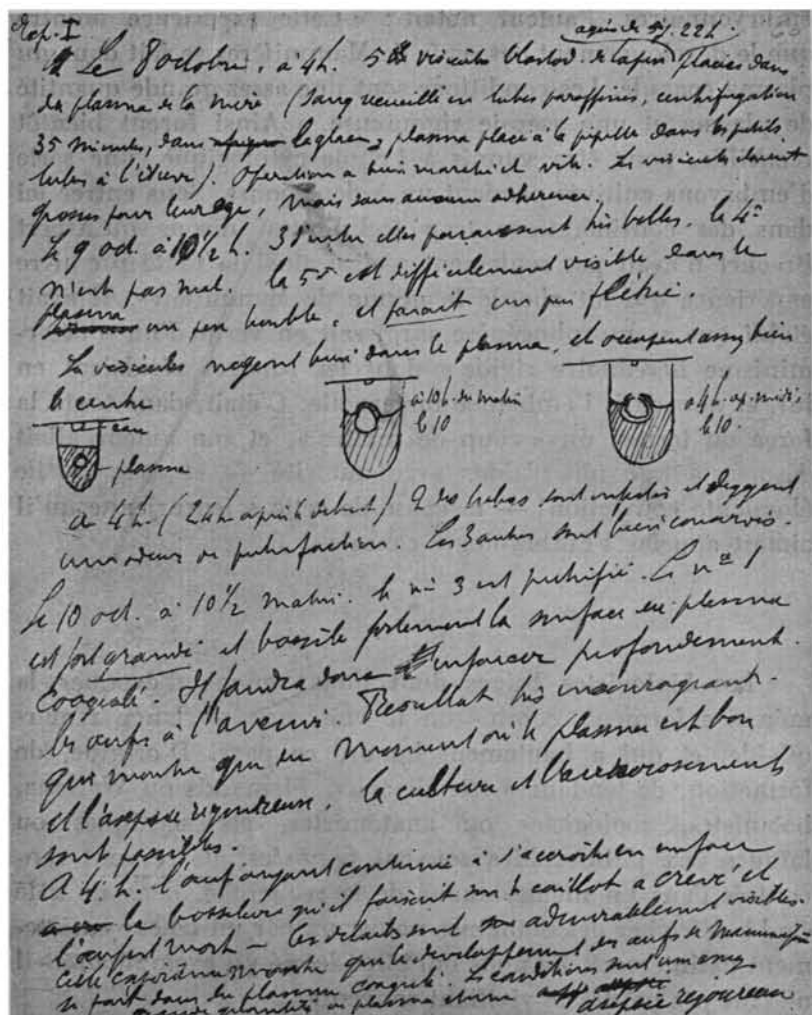 Exp. I
agées de 5j. 22h.
Le 8 octobre, a 4h. 5 vésicules blastod. de lapin placées dans
du plasma de la mère (sang recueilli en tubes paraffinés, centrifugation
35 minutes, dans la glace, plasma placé à la pipette dans les petits
tubes à l'étuve). Opération a bien marché et vite. Les vésicules étaient
grosses pour leur age, mais sans aucune adhérence.
Le 9 oct. à 10½ h. 3 d'entre elles paraissent très belles. la 4e
n'est pas mal. la 5e est difficilement visible dans le
plasma un peu trouble, et parait un peu flétrie.
Les vésicules nagent bien dans le plasma, et occupent assez bien
le centre
eau
plasma
à 10h. du matin
le 10
a 4h. ap. midi
le 10.
A 4h. (24h après le début) 2 des tubes sont infectés et dégagent
une odeur de putréfaction. Les 3 autres sont bien conservés.
Le 10 oct. à 10½ matin. le n° 3 est putréfié. Le n° 1
est fort grandi et bossèle fortement la surface du plasma
coagulé. Il faudra donc enfoncer profondement
les œufs à l'avenir. Résultat très encourageant.
qui montre que du moment où le plasma est bon
et l'asepsie rigoureuse, la culture et l'accroissement
sont possibles.
A 4 h. l'œuf ayant continué à s'accroître en surface
la bosselure qu'il faisait sur le caillot a crevé et
l'œuf est mort — les détails sont admirablement visibles.
Cette expérience montre que le développement des œufs de Mammifère
se fait dans du plasma coagulé. Les conditions sont une assez
grande quantité de plasma et une asepsie rigoureuse